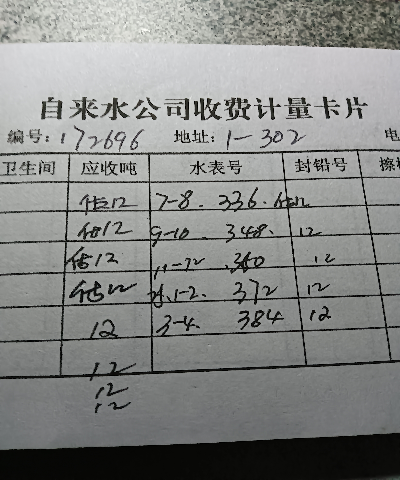 自来水公司收费计量卡片
编号:172696 地址:1-302 电
卫生间 应收吨 水表号 封铅号 擦
估12 7-8. 336. 估12
估12 9-10. 348. 12
估12 11-12 360 12
估12 1-2. 372 12
12 3-4. 384 12
12
12
12